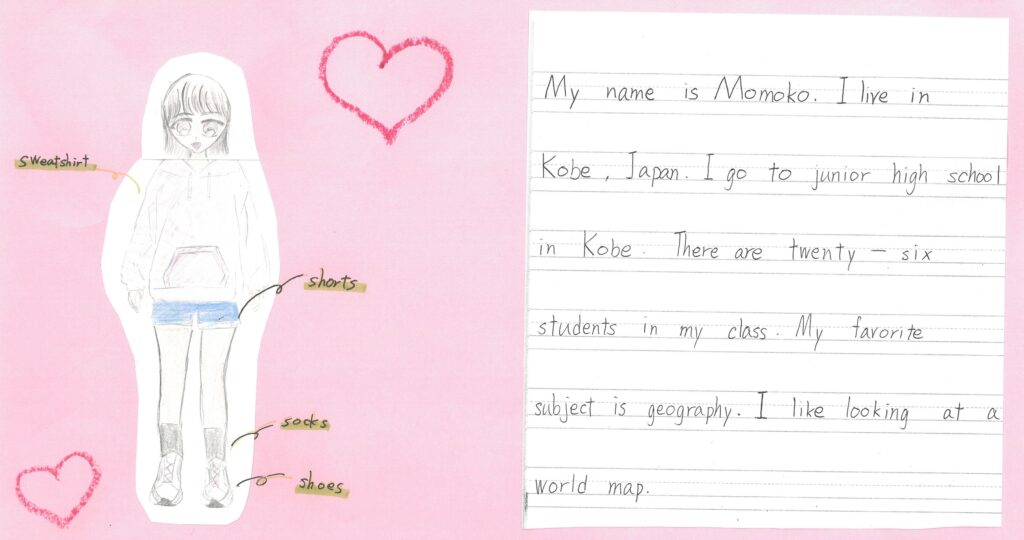 sweatshirt
shorts
socks
shoes
My name is Momoko. I live in
Kobe, Japan. I go to junior high school
in Kobe. There are twenty - six
students in my class. My favorite
subject is geography. I like looking at a
world map.